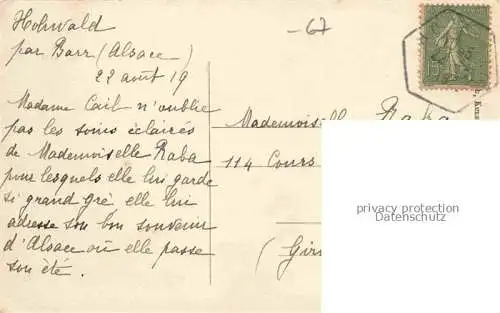 Hohwald
par Barr (Alsace)
22 août 19
Madame Cail n'oublie
pas les soins éclairés
de Mademoiselle Raba
pour lesquels elle lui garde
si grand gré elle lui
adresse son bon souvenir
d'Alsace où elle passe
son été.
-67
Mademoiselle Raba
114 Cours
(Gir
privacy protection
Datenschutz